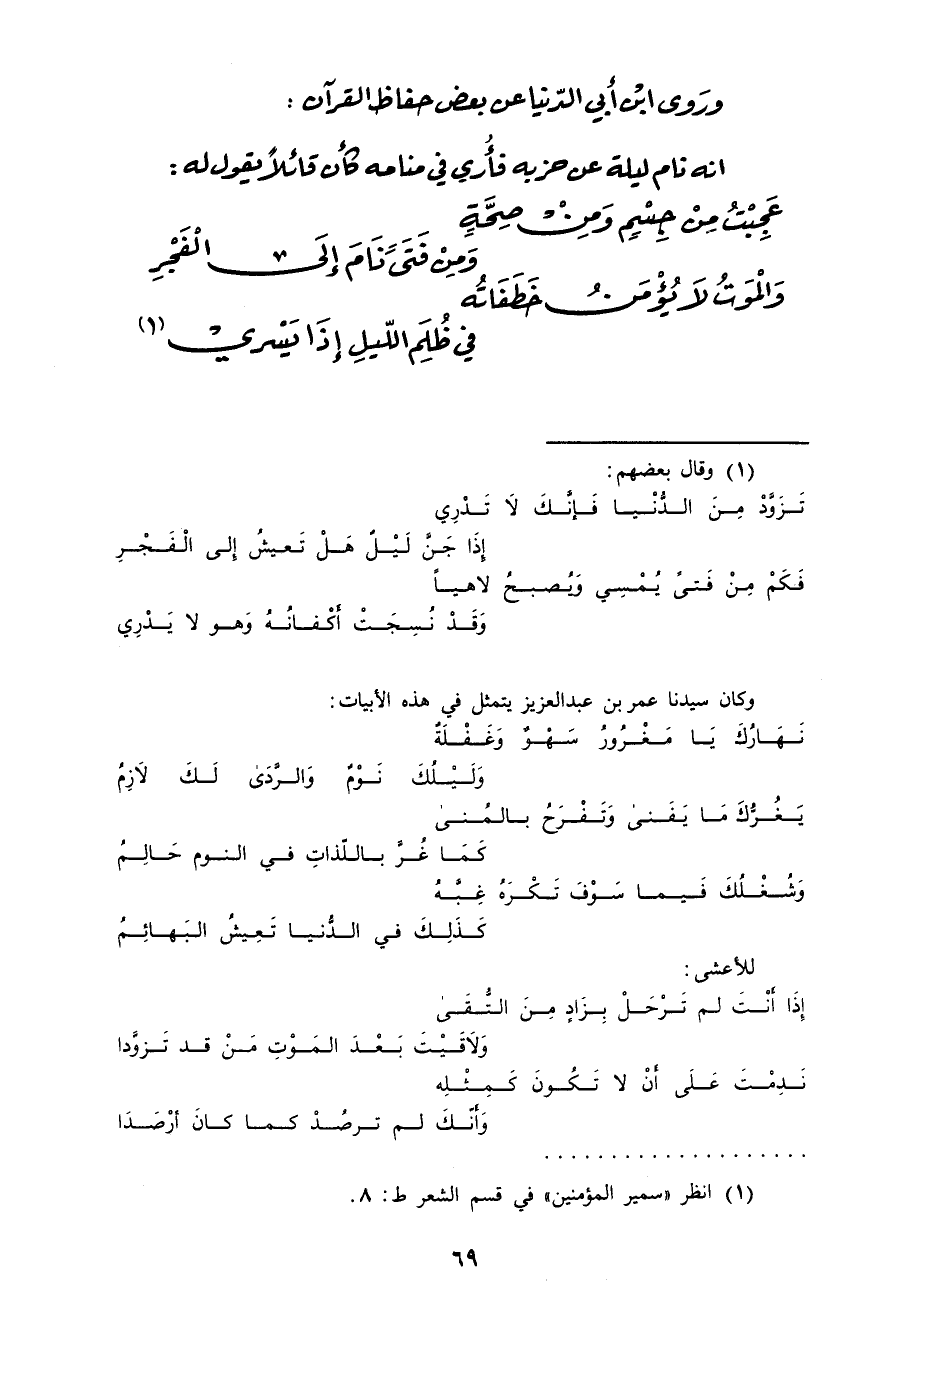 وروى ابن أبي الدّنيا عن بعض حفاظ القرآن :
انه نام ليلة عن حزبه فأُري في منامه كأن قائلاً يقول له :
عَجِبْتُ مِنْ جِسْمٍ وَمِنْ صِحَّةٍ
وَمِنْ فَتَىً نَامَ إِلَى الْفَجْرِ
وَالْمَوتُ لاَ يُؤْمَنُ خَطَفَاتُه
في ظُلَمِ اللّيلِ إِذَا يَسْري (١)
(١) وقال بعضهم:
تَزَوَّدْ مِنَ الدُّنْيا فَإِنَّكَ لاَ تَدْرِي
إِذَا جَنَّ لَيْلٌ هَلْ تَعيشُ إلى الْفَجْرِ
فَكَمْ مِنْ فَتىً يُمْسِي وَيُصبحُ لاهياً
وَقَدْ نُسِجَتْ أَكْفانُهُ وَهو لا يَدْرِي
وكان سيدنا عمر بن عبدالعزيز يتمثل في هذه الأبيات:
نَهَارُكَ يَا مَغْرُورُ سَهْوٌ وَغَفْلَةٌ
وَلَيْلُكَ نَوْمٌ وَالرَّدَىٰ لَكَ لاَزِمُ
يَغُرُّكَ مَا يَفَنىٰ وَتَفْرَحُ بِالمُنىٰ
كَمَا غُرَّ بِاللّذاتِ في النوم حَالِمُ
وَشُغْلُكَ فَيما سَوْفَ تَكْرَهُ غِبَّهُ
كَذَلِكَ في الدُّنيا تَعِيشُ البَهائِمُ
للأعشى:
إِذَا أَنْتَ لم تَرْحَلْ بِزَادٍ مِنَ التُّقَىٰ
وَلاَقَيْتَ بَعْدَ المَوْتِ مَنْ قد تَزوَّدا
نَدِمْتَ عَلَى أَنْ لا تَكُونَ كَمِثْلِهِ
وَأَنَّكَ لم ترصُدْ كما كانَ أرْصَدَا
(١) انظر «سمير المؤمنين» في قسم الشعر ط: ٨.
٦٩